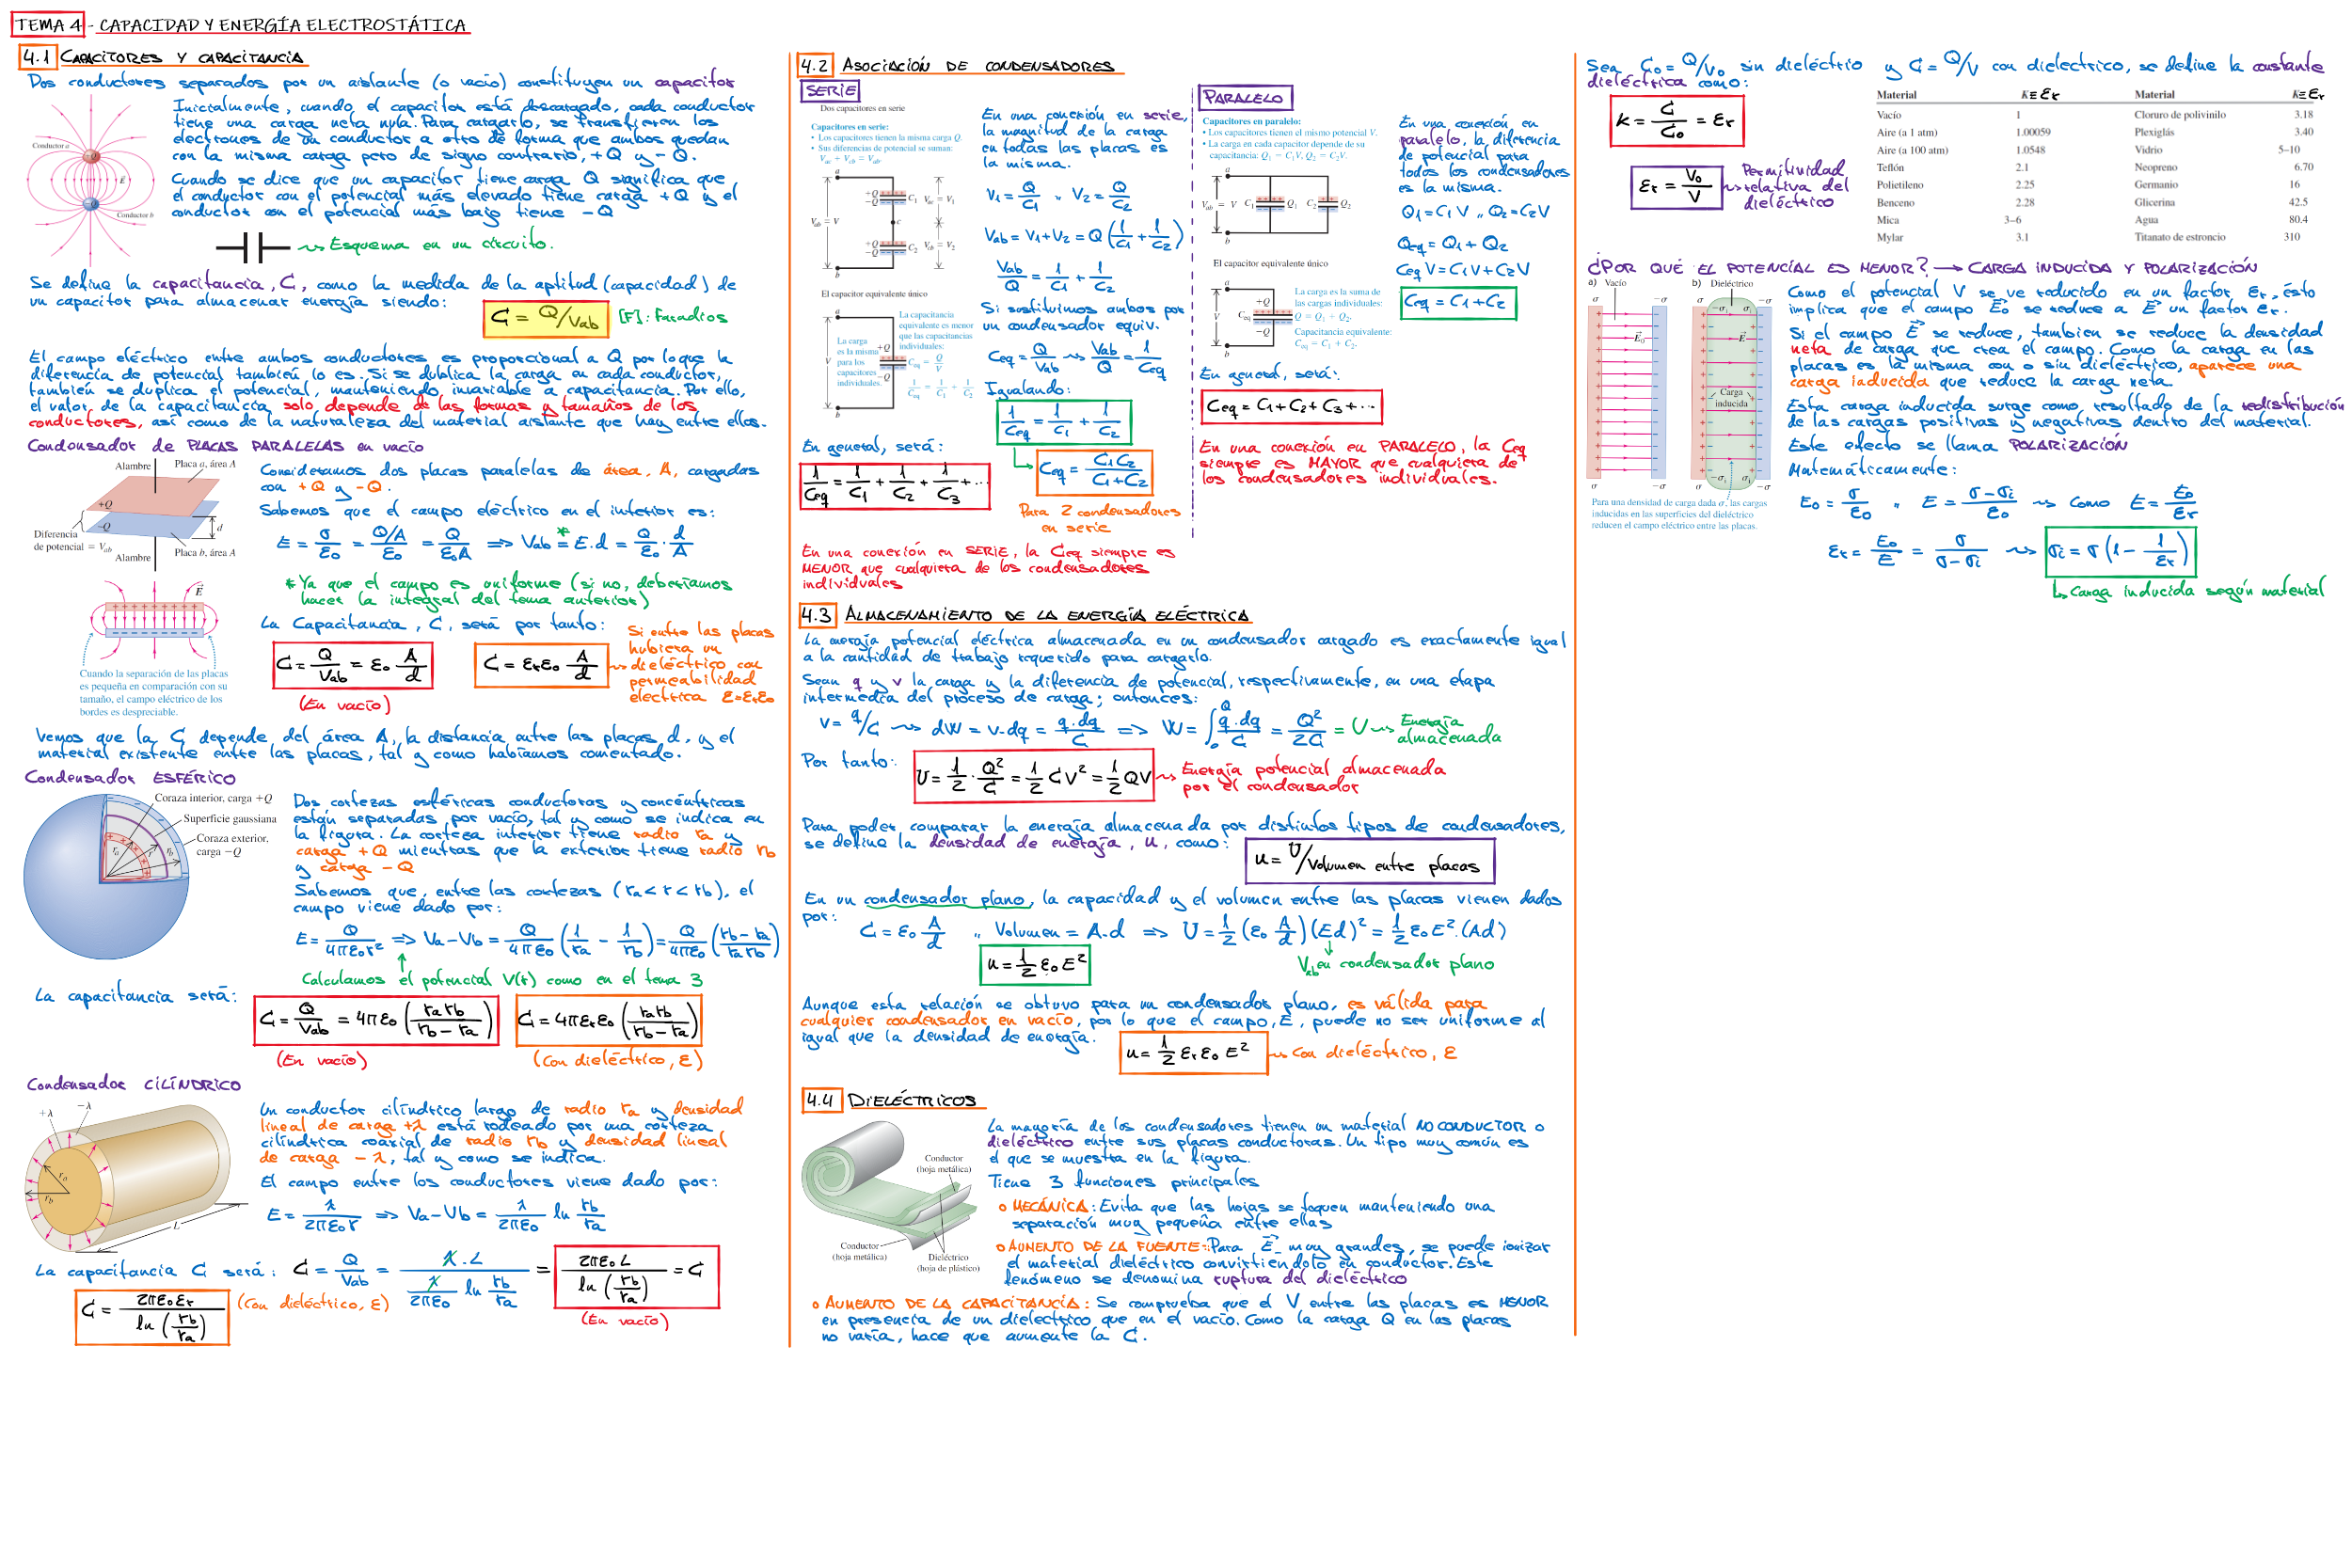 TEMA 4 - CAPACIDAD Y ENERGÍA ELECTROSTÁTICA
4.1 CAPACITORES Y CAPACITANCIA
Dos conductores separados por un aislante (o vacío) constituyen un capacitor
Conductor a
+Q
E
-Q
Conductor b
Inicialmente, cuando el capacitor está descargado, cada conductor
tiene una carga neta nula. Para cargarlo, se transfieren los
electrones de un conductor a otro de forma que ambos quedan
con la misma carga pero de signo contrario, +Q y -Q.
Cuando se dice que un capacitor tiene carga Q significa que
el conductor con el potencial más elevado tiene carga +Q y el
conductor con el potencial más bajo tiene -Q
Esquema en un circuito.
Se define la capacitancia, C, como la medida de la aptitud (capacidad) de
un capacitor para almacenar energía siendo:
C = Q/Vab [F]: Faradios
El campo eléctrico entre ambos conductores es proporcional a Q por lo que la
diferencia de potencial también lo es. Si se dublica la carga en cada conductor,
también se duplica el potencial, manteniendo invariable a capacitancia. Por ello,
el valor de la capacitancia solo depende de las formas y tamaños de los
conductores, así como de la naturaleza del material aislante que hay entre ellos.
Condensador de PLACAS PARALELAS en vacío
Alambre
Placa a, área A
+Q
-Q
d
Diferencia
de potencial = Vab
Alambre
Placa b, área A
E
Cuando la separación de las placas
es pequeña en comparación con su
tamaño, el campo eléctrico de los
bordes es despreciable.
Consideramos dos placas paralelas de área, A, cargadas
con +Q y -Q.
Sabemos que el campo eléctrico en el interior es:
E = σ/ε₀ = (Q/A)/ε₀ = Q/(ε₀A) => Vab =* E.d = Q/ε₀ · d/A
* Ya que el campo es uniforme (si no, deberíamos
hacer la integral del tema anterior)
La Capacitancia, C, será por tanto:
C = Q/Vab = ε₀ A/d
(En vacío)
C = εrε₀ A/d
Si entre las placas
hubiera un
dieléctrico con
permeabilidad
electrica ε=εrε₀
Vemos que la C depende del área A, la distancia entre las placas d, y el
material existente entre las placas, tal y como habíamos comentado.
Condensador ESFÉRICO
Coraza interior, carga +Q
Superficie gaussiana
Coraza exterior,
carga -Q
ra
r
rb
Dos cortezas esféricas conductoras y concéntricas
están separadas por vacío, tal y como se indica en
la figura. La corteza interior tiene radio ra y
carga +Q mientras que la exterior tiene radio rb
y carga -Q
Sabemos que, entre las cortezas (ra < r < rb), el
campo viene dado por:
E = Q/(4πε₀r²) => Va-Vb = Q/(4πε₀) (1/ra - 1/rb) = Q/(4πε₀) ((rb-ra)/(ra rb))
Calculamos el potencial V(r) como en el tema 3
La capacitancia será:
C = Q/Vab = 4πε₀ (ra rb/(rb-ra))
(En vacío)
C = 4πεrε₀ (ra rb/(rb-ra))
(Con dieléctrico, ε)
Condensador CILÍNDRICO
+λ
-λ
ra
rb
L
Un conductor cilíndrico largo de radio ra y densidad
lineal de carga +λ está rodeado por una corteza
cilíndrica coaxial de radio rb y densidad lineal
de carga -λ, tal y como se indica.
El campo entre los conductores viene dado por:
E = λ/(2πε₀r) => Va-Vb = λ/(2πε₀) ln rb/ra
La capacitancia C será: C = Q/Vab = (λ.L)/(λ/(2πε₀) ln rb/ra) = 2πε₀L/ln(rb/ra) = C
(En vacío)
C = 2πε₀εr/ln(rb/ra) (Con dieléctrico, ε)
4.2 ASOCIACIÓN DE CONDENSADORES
SERIE
Dos capacitores en serie
Capacitores en serie:
• Los capacitores tienen la misma carga Q.
• Sus diferencias de potencial se suman:
Vac + Vcb = Vab.
a
+Q
-Q
C1 Vac = V1
Vab = V
c
+Q
-Q
C2 Vcb = V2
b
El capacitor equivalente único
a
La capacitancia
equivalente es menor
que las capacitancias
individuales:
La carga
es la misma
para los
capacitores
individuales.
V
+Q
-Q
Ceq = Q/V
1/Ceq = 1/C1 + 1/C2
b
En una conexión en serie,
la magnitud de la carga
en todas las placas es
la misma.
V1 = Q/C1 ,, V2 = Q/C2
Vab = V1+V2 = Q (1/C1 + 1/C2)
Vab/Q = 1/C1 + 1/C2
Si sustituimos ambos por
un condensador equiv.
Ceq = Q/Vab ~> Vab/Q = 1/Ceq
Igualando:
1/Ceq = 1/C1 + 1/C2
Ceq = C1C2/(C1+C2)
Para 2 condensadores
en serie
En general, será:
1/Ceq = 1/C1 + 1/C2 + 1/C3 + ...
En una conexión en SERIE, la Ceq siempre es
MENOR que cualquiera de los condensadores
individuales
PARALELO
Capacitores en paralelo:
• Los capacitores tienen el mismo potencial V.
• La carga en cada capacitor depende de su
capacitancia: Q1 = C1V, Q2 = C2V.
a
Vab = V C1 Q1 C2 Q2
b
El capacitor equivalente único
a
La carga es la suma de
las cargas individuales:
Q = Q1 + Q2.
Capacitancia equivalente:
Ceq = C1 + C2.
V
Ceq
+Q
-Q
b
En una conexión en
paralelo, la diferencia
de potencial para
todos los condensadores
es la misma.
Q1 = C1V ,, Q2 = C2V
Qeq = Q1 + Q2
CeqV = C1V + C2V
Ceq = C1 + C2
En general, será:
Ceq = C1 + C2 + C3 + ...
En una conexión en PARALELO, la Ceq
siempre es MAYOR que cualquiera de
los condensadores individuales.
4.3 ALMACENAMIENTO DE LA ENERGÍA ELÉCTRICA
La energía potencial eléctrica almacenada en un condensador cargado es exactamente igual
a la cantidad de trabajo requerido para cargarlo.
Sean q y v la carga y la diferencia de potencial, respectivamente, en una etapa
intermedia del proceso de carga; entonces:
v = q/C ~> dW = v.dq = q.dq/C => W = ∫₀^Q q.dq/C = Q²/2C = U ~> Energía
almacenada
Por tanto:
U = 1/2 · Q²/C = 1/2 CV² = 1/2 QV
Energía potencial almacenada
por el condensador
Para poder comparar la energía almacenada por distintos tipos de condensadores,
se define la densidad de energía, u, como:
u = U/Volumen entre placas
En un condensador plano, la capacidad y el volumen entre las placas vienen dados
por:
C = ε₀ A/d ,, Volumen = A.d => U = 1/2 (ε₀ A/d)(Ed)² = 1/2 ε₀E².(Ad)
Vab en condensador plano
u = 1/2 ε₀E²
Aunque esta relación se obtuvo para un condensador plano, es válida para
cualquier condensador en vacío, por lo que el campo, E, puede no ser uniforme al
igual que la densidad de energía.
u = 1/2 εrε₀E² ~> Con dieléctrico, ε
4.4 DIELÉCTRICOS
Conductor
(hoja metálica)
Conductor
(hoja metálica)
Dieléctrico
(hoja de plástico)
La mayoría de los condensadores tienen un material NO CONDUCTOR o
dieléctrico entre sus placas conductoras. Un tipo muy común es
el que se muestra en la figura.
Tiene 3 funciones principales
o MECÁNICA: Evita que las hojas se toquen manteniendo una
separación muy pequeña entre ellas
o AUMENTO DE LA FUENTE: Para E muy grandes, se puede ionizar
el material dieléctrico convirtiendolo en conductor. Este
fenómeno se denomina ruptura del dieléctrico
o AUMENTO DE LA CAPACITANCIA: Se comprueba que el V entre las placas es MENOR
en presencia de un dielectrico que en el vacío. Como la carga Q en las placas
no varía, hace que aumente la C.
Sea C₀ = Q/V₀ sin dieléctrio y C = Q/V con dielectrico, se define la constante
dieléctrica como:
K = C/C₀ = εr
εr = V₀/V
Permitividad
relativa del
dieléctrico
Material K≡εr Material K≡εr
Vacío 1 Cloruro de polivinilo 3.18
Aire (a 1 atm) 1.00059 Plexiglás 3.40
Aire (a 100 atm) 1.0548 Vidrio 5–10
Teflón 2.1 Neopreno 6.70
Polietileno 2.25 Germanio 16
Benceno 2.28 Glicerina 42.5
Mica 3–6 Agua 80.4
Mylar 3.1 Titanato de estroncio 310
¿POR QUÉ EL POTENCIAL ES MENOR? → CARGA INDUCIDA Y POLARIZACIÓN
a) Vacío
b) Dieléctrico
σ -σ σ -σ
-σi σi
E₀
E
Carga
inducida
-σi σi
σ -σ σ -σ
Para una densidad de carga dada σ, las cargas
inducidas en las superficies del dieléctrico
reducen el campo eléctrico entre las placas.
Como el potencial V se ve reducido en un factor εr, ésto
implica que el campo E₀ se reduce a E un factor εr.
Si el campo E se reduce, tambien se reduce la densidad
neta de carga que crea el campo. Como la carga en las
placas es la misma con o sin dieléctrico, aparece una
carga inducida que reduce la carga neta.
Esta carga inducida surge como resultado de la redistribución
de las cargas positivas y negativas dentro del material.
Este efecto se llama POLARIZACIÓN
Matemáticamente:
E₀ = σ/ε₀ ,, E = (σ-σi)/ε₀ ~> Como E = E₀/εr
εr = E₀/E = σ/(σ-σi) ~> σi = σ(1 - 1/εr)
Carga inducida según material